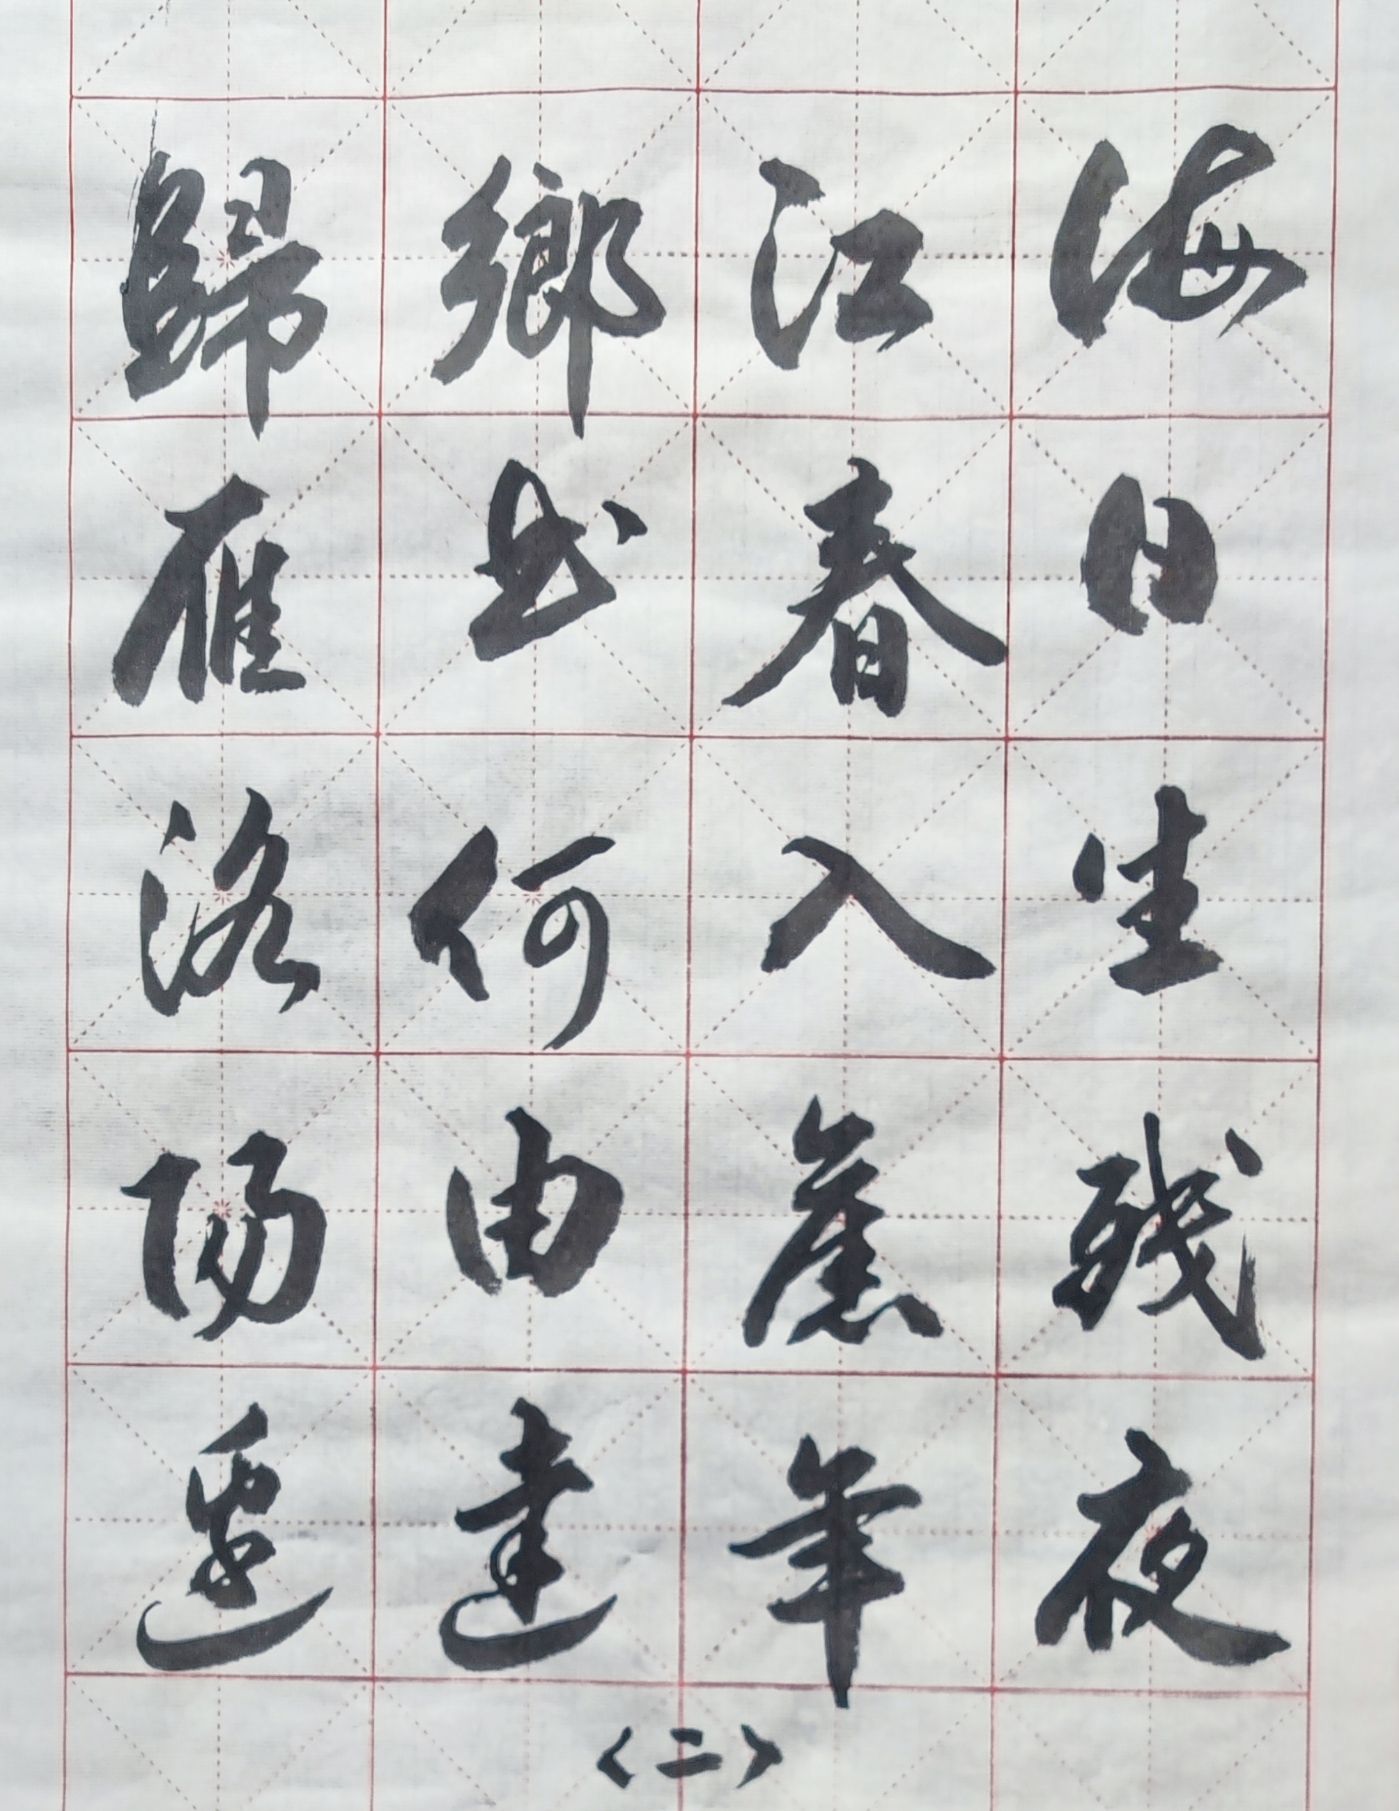 海日生残夜
江春入舊年
鄉书何由達
歸雁洛陽邊
〈二〉